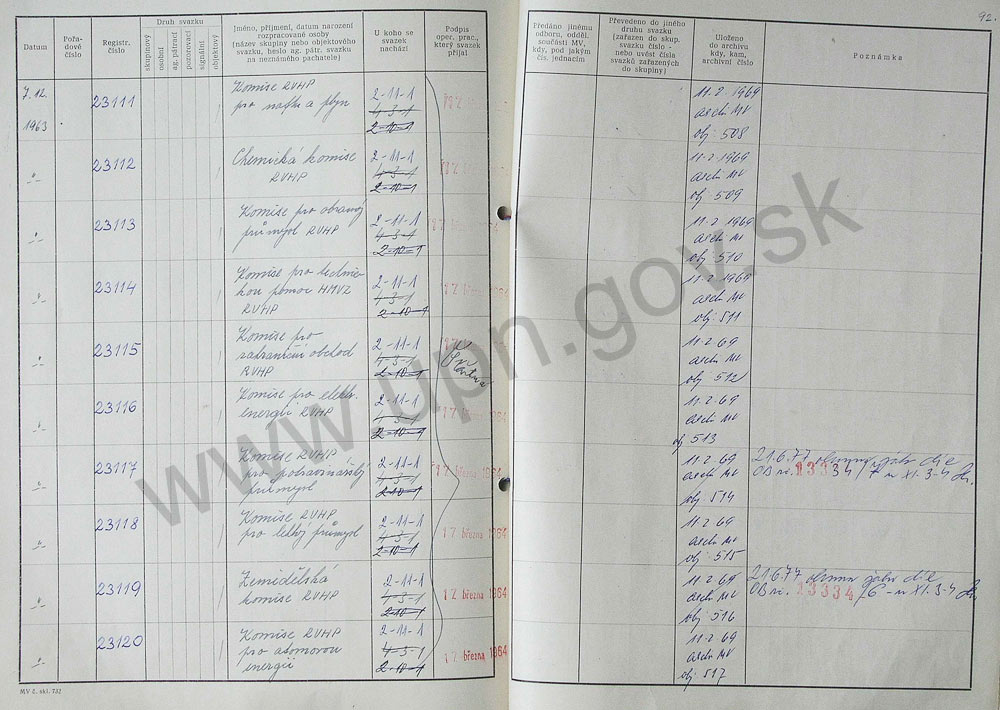 92.
Datum
Pořadové číslo
Registr. číslo
Druh svazku
skupinový
ag. pátrací
pozorovací
signální
objektový
Jméno, příjmení, datum narození
rozpracované osoby
(název skupiny nebo objektového
svazku, heslo ag. pátr. svazku
na neznámého pachatele)
U koho se
svazek
nachází
Podpis
oper. prac.,
který svazek
přijal
Předáno jinému
odboru, odděl.
součásti MV,
kdy, pod jakým
čís. jednacím
Převedeno do jiného
druhu svazku
(zařazen do skup.
svazku číslo -
nebo uvést čísla
svazků zařazených
do skupiny)
Uloženo
do archivu
kdy, kam,
archivní číslo
Poznámka
7.12.
1963
23111
Komise RVHP
pro naftu a plyn
2-11-1
4-3-1
2-10-1
11.2.1969
arch MV
obj 508
23112
Chemická komise
RVHP
2-11-1
4-3-1
2-10-1
11.2.1969
arch MV
obj 509
23113
Komise pro obranný
průmysl RVHP
2-11-1
4-3-1
2-10-1
11.2.1969
arch MV
obj. 510
23114
Komise pro technic-
kou pomoc HMVZ
RVHP
2-11-1
4-3-1
2-10-1
17. března
11.2.1969
arch MV
obj. 511
23115
Komise pro
zahraniční obchod
RVHP
2-11-1
4-3-1
2-10-1
11.2.69
arch MV
obj 512
23116
Komise pro elektr.
energii RVHP
2-11-1
4-3-1
2-10-1
17. března 1964
11.2.69
arch MV
obj 513
23117
Komise RVHP
pro potravinářský
průmysl
2-11-1
4-3-1
2-10-1
17. března 1964
11.2.69
arch MV
obj. 514
21.6.77
OB
13334
XI. 3-4
23118
Komise RVHP
pro lehký průmysl
2-11-1
4-3-1
2-10-1
17. března 1964
11.2.69
arch MV
obj. 515
23119
Zemědělská
komise RVHP
2-11-1
4-3-1
2-10-1
17. března 1964
11.2.69
arch MV
obj. 516
21.6.77
OB
13334
XI. 3-4
23120
Komise RVHP
pro atomovou
energii
2-11-1
4-3-1
2-10-1
17. března 1964
11.2.69
arch MV
obj. 517
MV č. skl. 732
www.upn.gov.sk